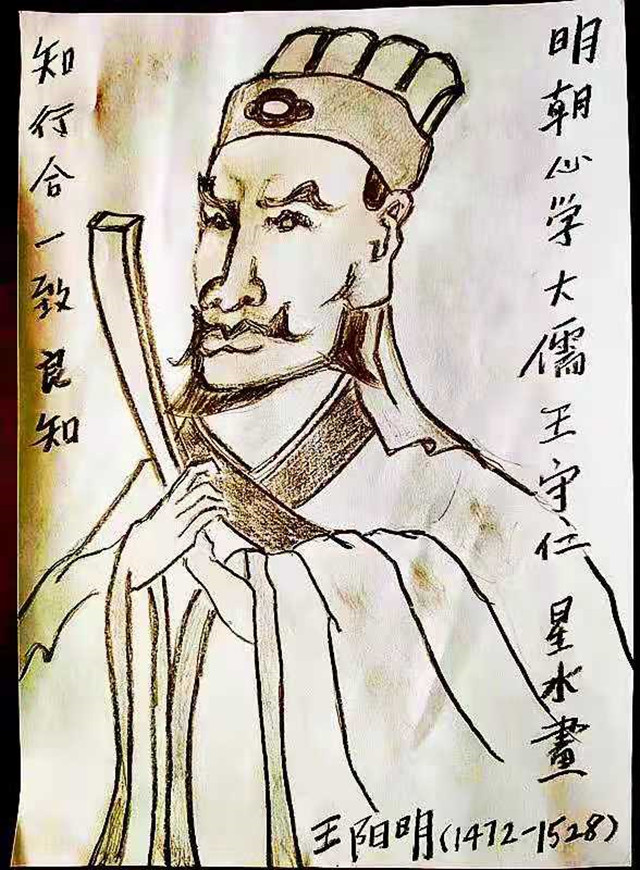 明朝心学大儒王守仁 星水畫
知行合一致良知
王阳明(1472-1528)